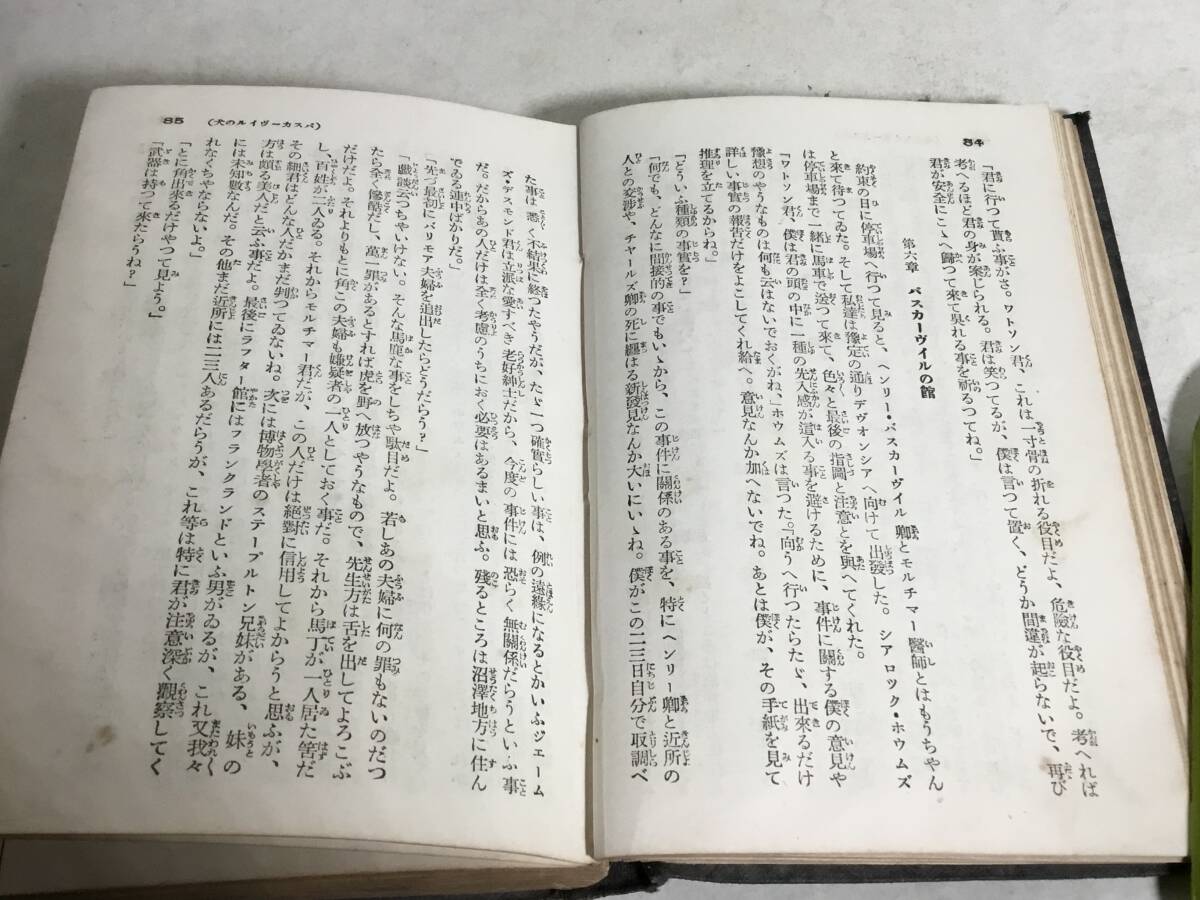 84
「君に行つて貰ふ事がさ。ワトソン君、これは一寸骨の折れる役目だよ、危險な役目だよ。考へれば
考へるほど君の身が案じられる。君は笑つてるが、僕は言つて置く、どうか間違が起らないで、再び
君が安全にこゝへ歸つて來て呉れる事を祈るつてね。」
第六章 バスカーヴイルの館
約束の日に停車場へ行つて見ると、ヘンリー・バスカーヴイル卿とモルチマー醫師とはもうちやん
と來て待つてゐた。そして私達は豫定の通りデヴオンシアへ向けて出發した。シアロツク・ホウムズ
は停車場まで一緒に馬車で送つて來て、色々と最後の指圖と注意とを與へてくれた。
「ワトソン君、僕は君の頭の中に一種の先入感が這入る事を避けるために、事件に關する僕の意見や
豫想のやうなものは何も云はないでおくがね、」ホウムズは言つた。「向うへ行つたらたゞ、出來るだけ
詳しい事實の報吿だけをよこしてくれ給へ。意見なんか加へないでね。あとは僕が、その手紙を見て
推理を立てるからね。」
「どういふ種類の事實を?」
「何でも、どんなに間接的の事でもいゝから、この事件に關係のある事を、特にヘンリー卿と近所の
人との交渉や、チヤールズ卿の死に纒はる新發見なんか大いにいゝね。僕がこの二三日自分で取調べ
85 (バスカーヴイルの犬)
た事は悉く不結果に終つたやうだが、たゞ一つ確實らしい事は、例の遠緣になるとかいふジエーム
ズ・デスモンド君は立派な愛すべき老好紳士だから、今度の事件には恐らく無關係だらうといふ事
だ。だからあの人だけは全く考慮のうちにおく必要はあるまいと思ふ。殘るところは沼澤地方に住ん
でゐる連中ばかりだ。」
「先づ最初にバリモア夫婦を追出したらどうだらう?」
「戲談云つちやいけない。そんな馬鹿な事をしちや駄目だよ。若しあの夫婦に何の罪もないのだつ
たら全く慘酷だし、萬一罪があるとすれば虎を野へ放つやうなもので、先生方は舌を出してよろこぶ
だけだよ。それよりもとに角この夫婦も嫌疑者の一人としておく事だ。それから馬丁が一人居た筈だ
し、百姓が二人ゐる。それからモルチマー君だが、この人だけは絕對に信用してよからうと思ふが、
その細君はどんな人だかまだ判つてゐないね。次には博物學者のステープルトン兄妹がある、妹の
方は頗る美人だと云ふ事だよ。最後にラフター館にはフランクランドといふ男がゐるが、これ又我々
には未知數なんだ。その他まだ近所には二三人あるだらうが、これ等は特に君が注意深く觀察してく
れなくちやならないよ。」
「とに角出來るだけやつて見よう。」
「武器は持つて來たらうね?」